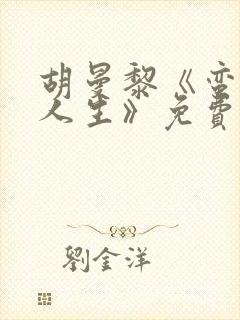 胡曼黎《蛮
人生》免费
劉金洋